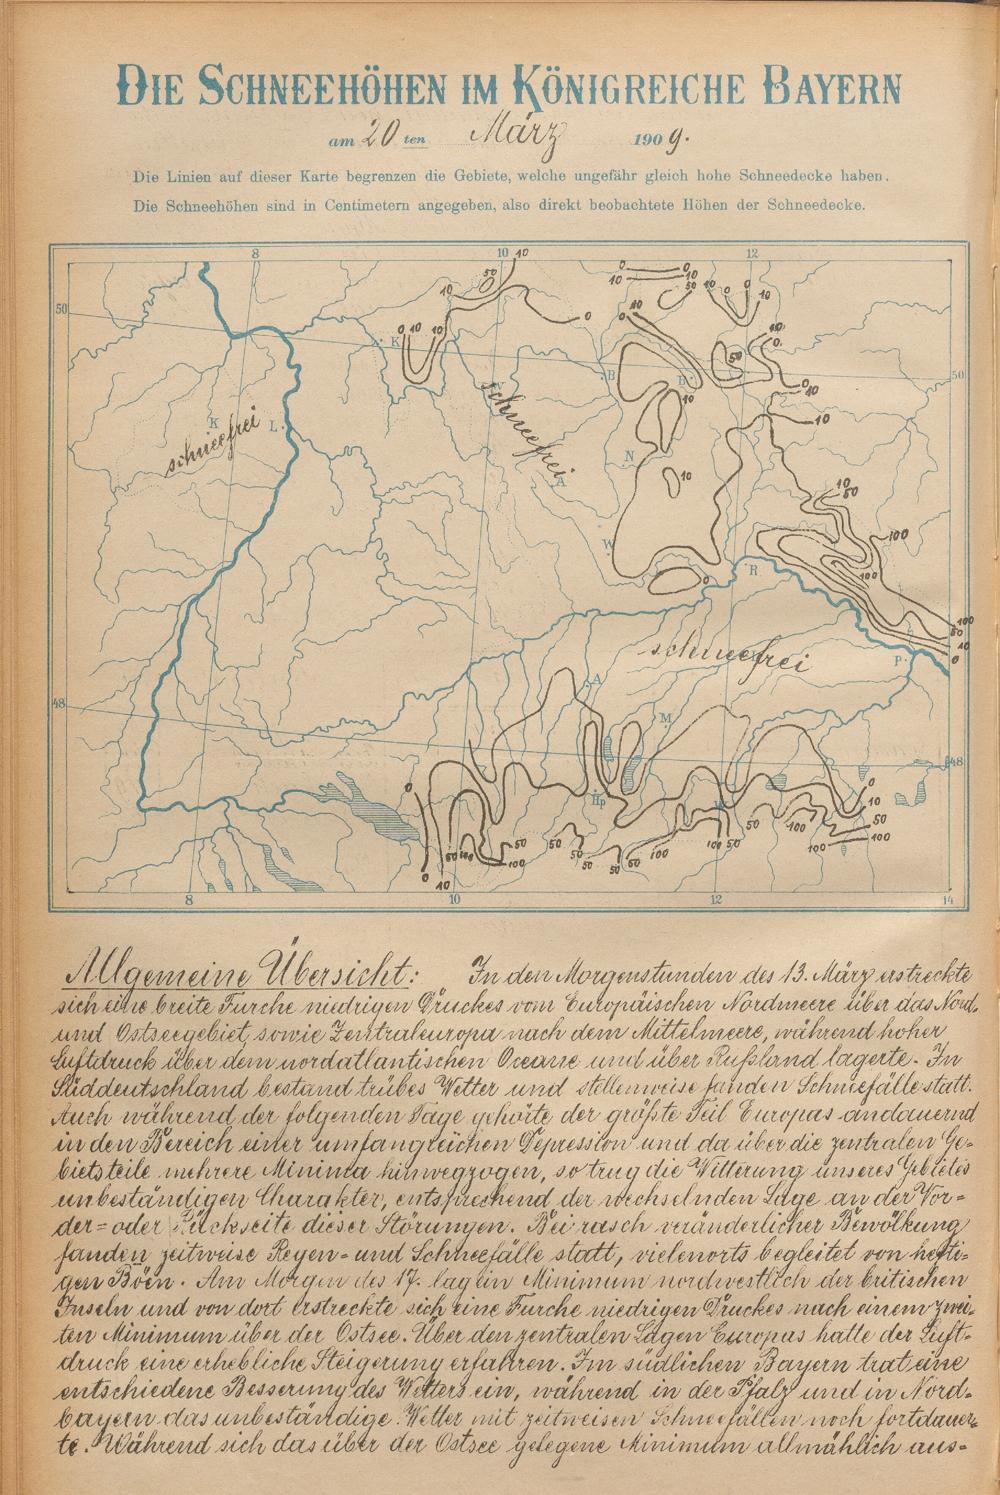 DIE SCHNEEHÖHEN IM KÖNIGREICHE BAYERN
am 20 ten März 1909.
Die Linien auf dieser Karte begrenzen die Gebiete, welche ungefähr gleich hohe Schneedecke haben.
Die Schneehöhen sind in Centimetern angegeben, also direkt beobachtete Höhen der Schneedecke.
8 10 12
10
50
10
0
10
0
10
50
10
0
0
10
50
0 10 10
K
0
10
10
0
50
10
0
50
B
B
10
0
10
schneefrei
K
L
schneefrei
10
N
10
10
50
W
100
100
0
R
100
50
10
0
schneefrei
P
A
48
M
48
0
Hp
0
10
50
100
50
100
50
50
50
50
50
100
100
50
50
100
100
0
10
8 10 12 14
Allgemeine Übersicht: In den Morgenstunden des 13. März erstreckte
sich eine breite Furche niedrigen Druckes vom Europäischen Nordmeere über das Nord-
und Ostseegebiet, sowie Zentraleuropa nach dem Mittelmeere, während hoher
Luftdruck über dem nordatlantischen Oceane und über Rußland lagerte. In
Süddeutschland bestand trübes Wetter und stellenweise fanden Schneefälle statt.
Auch während der folgenden Tage gehörte der größte Teil Europas andauernd
in den Bereich einer umfangreichen Depression und da über die zentralen Ge-
bietsteile mehrere Minima hinwegzogen, so trug die Witterung unseres Gebietes
unbeständigen Charakter, entsprechend der wechselnden Lage an der Vor-
der= oder Rückseite dieser Störungen. Bei rasch veränderlicher Bewölkung
fanden zeitweise Regen- und Schneefälle statt, vielenorts begleitet von hefti-
gen Böen. Am Morgen des 17. lag ein Minimum nordwestlich der britischen
Inseln und von dort erstreckte sich eine Furche niedrigen Druckes nach einem zwei-
ten Minimum über der Ostsee. Über den zentralen Lagen Europas hatte der Luft-
druck eine erhebliche Steigerung erfahren. Im südlichen Bayern trat eine
entschiedene Besserung des Wetters ein, während in der Pfalz und in Nord-
bayern das unbeständige Wetter mit zeitweisen Schneefällen noch fortdauer-
te. Während sich das über der Ostsee gelegene Minimum allmählich aus-